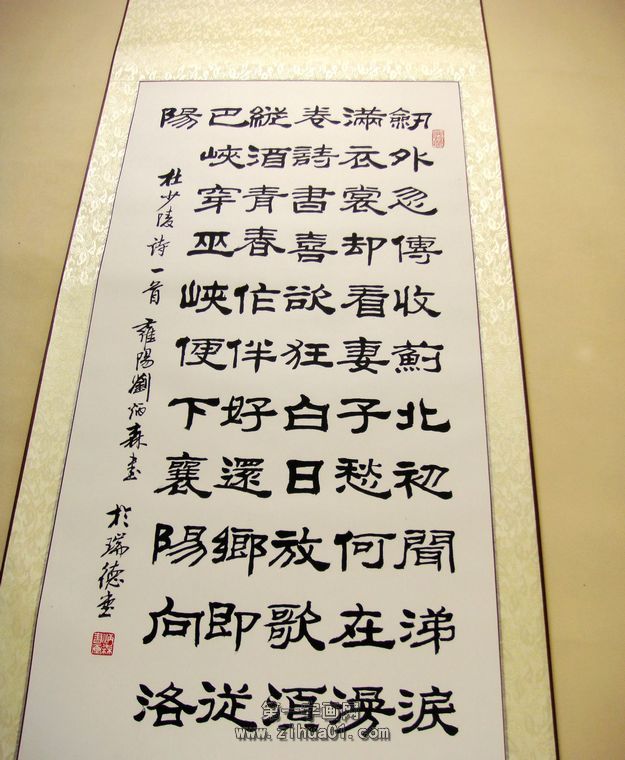 劒外忽傳收薊北初聞涕淚
滿衣裳却看妻子愁何在漫
卷詩書喜欲狂白日放歌須
縱酒青春作伴好還鄉即從
巴峽穿巫峽便下襄陽向洛
陽
杜少陵詩一首 雍陽劉炳森書 於瑞德堂
第一字画网
www.zihua01.com